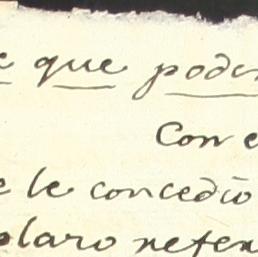 e que poder
Con e
e le concedio
plaro refer